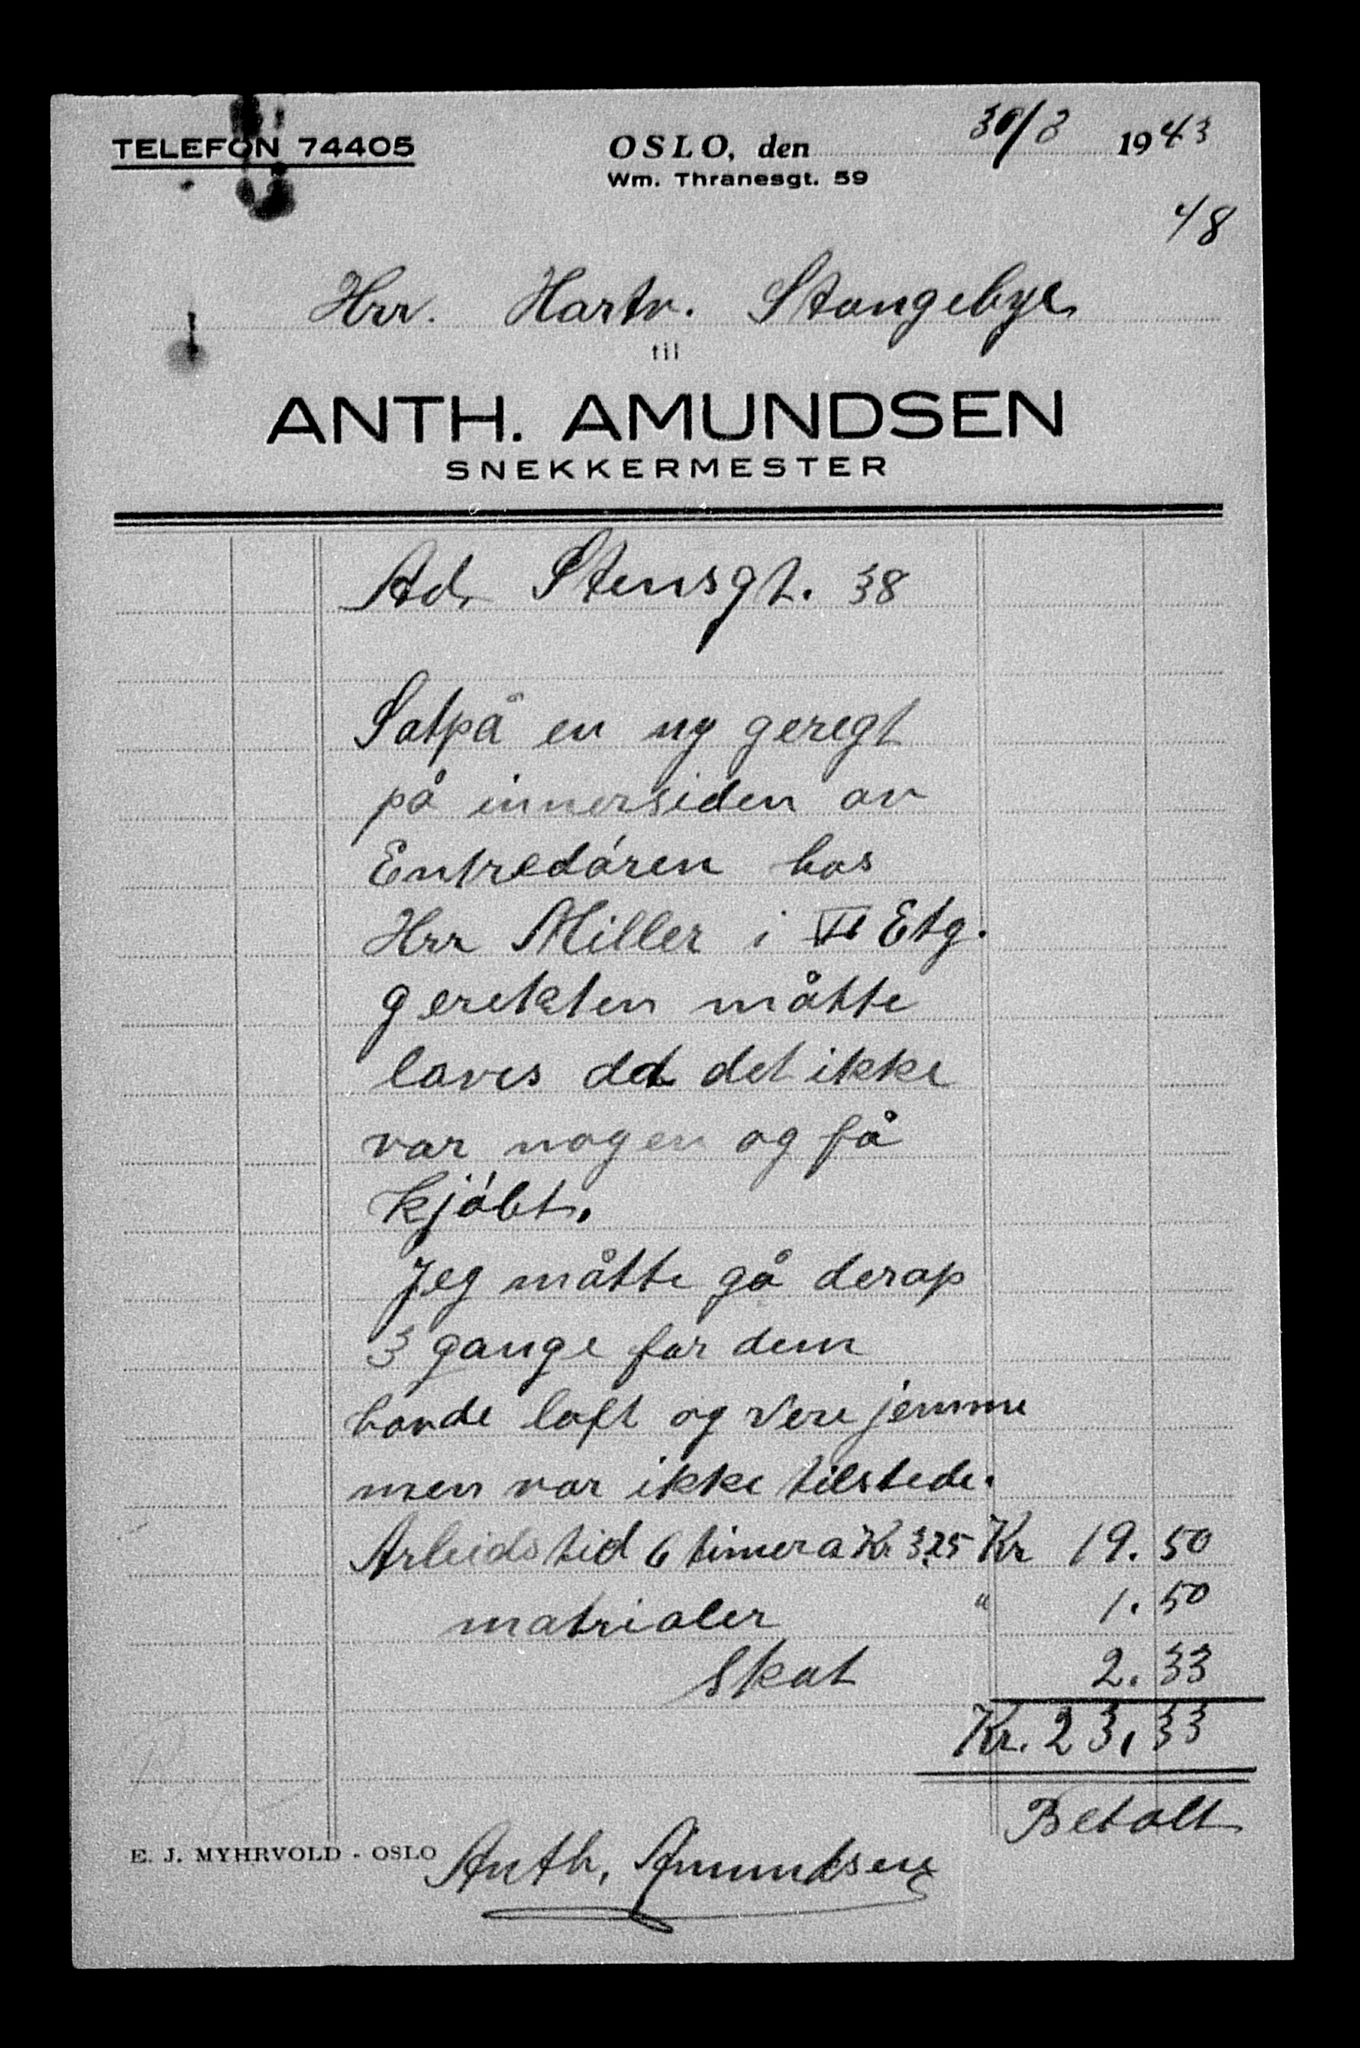 TELEFON 74405
OSLO, den 30/3 1943
Wm. Thranesgt. 59
48
Hrr. Hartv. Stangebye
til
ANTH. AMUNDSEN
SNEKKERMESTER
Ad. Stensgt. 38
Satpå en ny geregt
på innersiden av
Entredören hos
Hrr Miller i VI Etg.
gerekten måtte
laves dd det ikke
var nogen og få
kjöbt.
Jeg måtte gå derop
3 gange for dem
havde loft og vere jemme
men var ikke tilstede.
Arbeidstid 6 timer a Kr 3,25 Kr 19.50
matrialer " 1.50
Skat 2.33
Kr. 23,33
Betalt
E. J. MYHRVOLD - OSLO
Anth. Amundsen